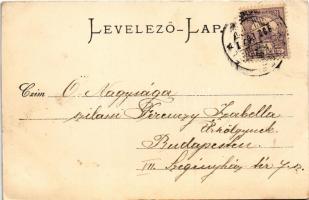 LEVELEZŐ-LAP.
Czim Ő Nagysága
szilasi Ferenczy Izabella
Úrhölgynek
Budapesten
VII. Szegényház tér 7. sz.